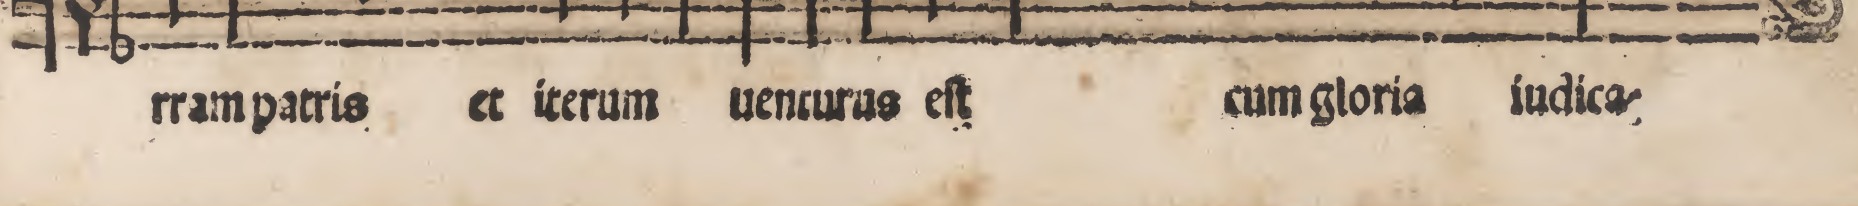 rram patris et iterum uenturus est cum gloria iudica